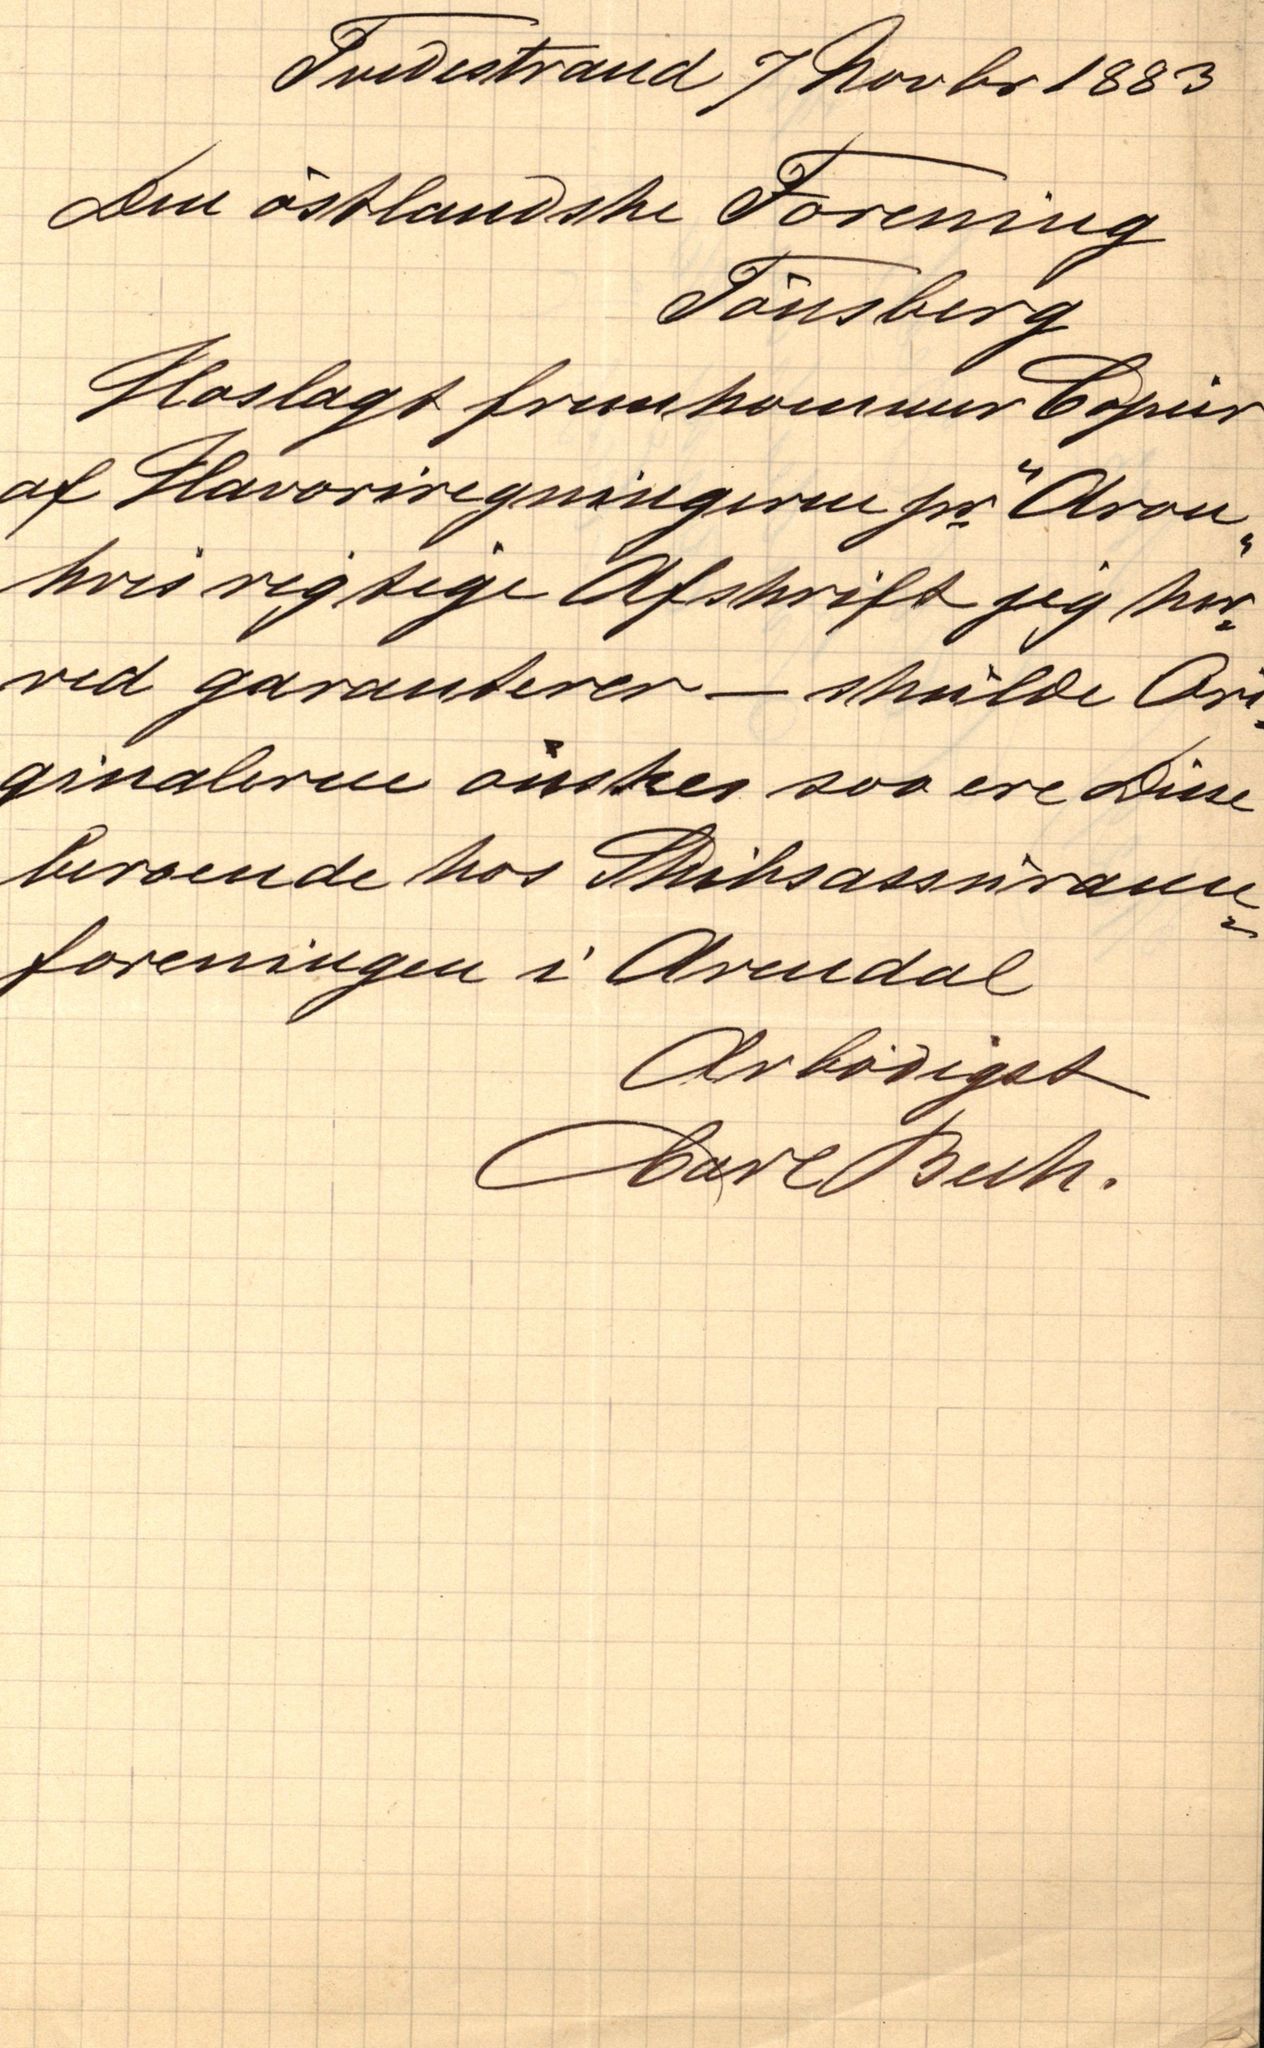 Tvedestrand 7 Novbr 1883
Den östlandske Forening
Tönsberg
Hoslagt fremkommer Copier
af Havariregningerne pr. "Aron"
hvis rigtige Afskrift jeg her-
ved garanterer — skulde Ori-
ginalerne önskes saa ere Disse
beroende hos Skibsassurance-
foreningen i Arendal
Ærbödigst
Carl Bech.